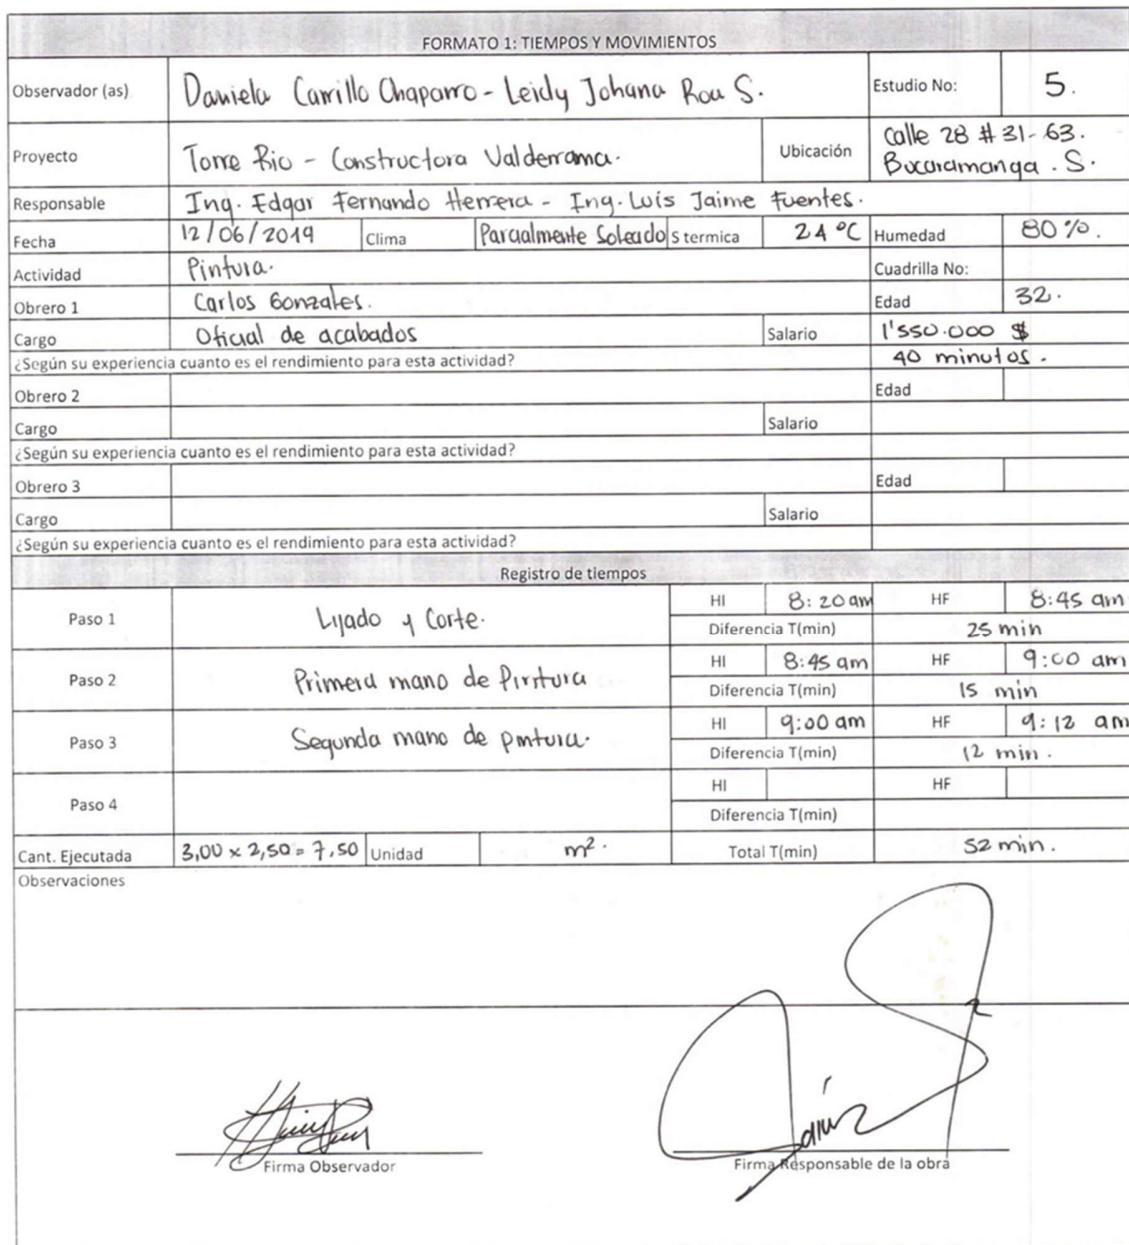 FORMATO 1: TIEMPOS Y MOVIMIENTOS
Observador (as) Daniela Carrillo Chaparro - Leidy Johana Roa S. Estudio No: 5.
Proyecto Torre Rio - Constructora Valderrama. Ubicación Calle 28 # 31-63. Bucaramanga. S.
Responsable Ing. Edgar Fernando Herrera - Ing. Luis Jaime Fuentes.
Fecha 12/06/2019 Clima Parcialmente Soleado S termica 24 °C Humedad 80%.
Actividad Pintura. Cuadrilla No:
Obrero 1 Carlos Gonzales. Edad 32.
Cargo Oficial de acabados Salario 1'550.000 $
¿Según su experiencia cuanto es el rendimiento para esta actividad? 40 minutos.
Obrero 2 Edad
Cargo Salario
¿Según su experiencia cuanto es el rendimiento para esta actividad?
Obrero 3 Edad
Cargo Salario
¿Según su experiencia cuanto es el rendimiento para esta actividad?
Registro de tiempos
Paso 1 Lijado y Corte. HI 8:20 am HF 8:45 am
Diferencia T(min) 25 min
Paso 2 Primera mano de Pintura HI 8:45 am HF 9:00 am
Diferencia T(min) 15 min
Paso 3 Segunda mano de pintura. HI 9:00 am HF 9:12 am
Diferencia T(min) 12 min.
Paso 4 HI HF
Diferencia T(min)
Cant. Ejecutada 3,00 x 2,50 = 7,50 Unidad m². Total T(min) 52 min.
Observaciones
Firma Observador Firma Responsable de la obra